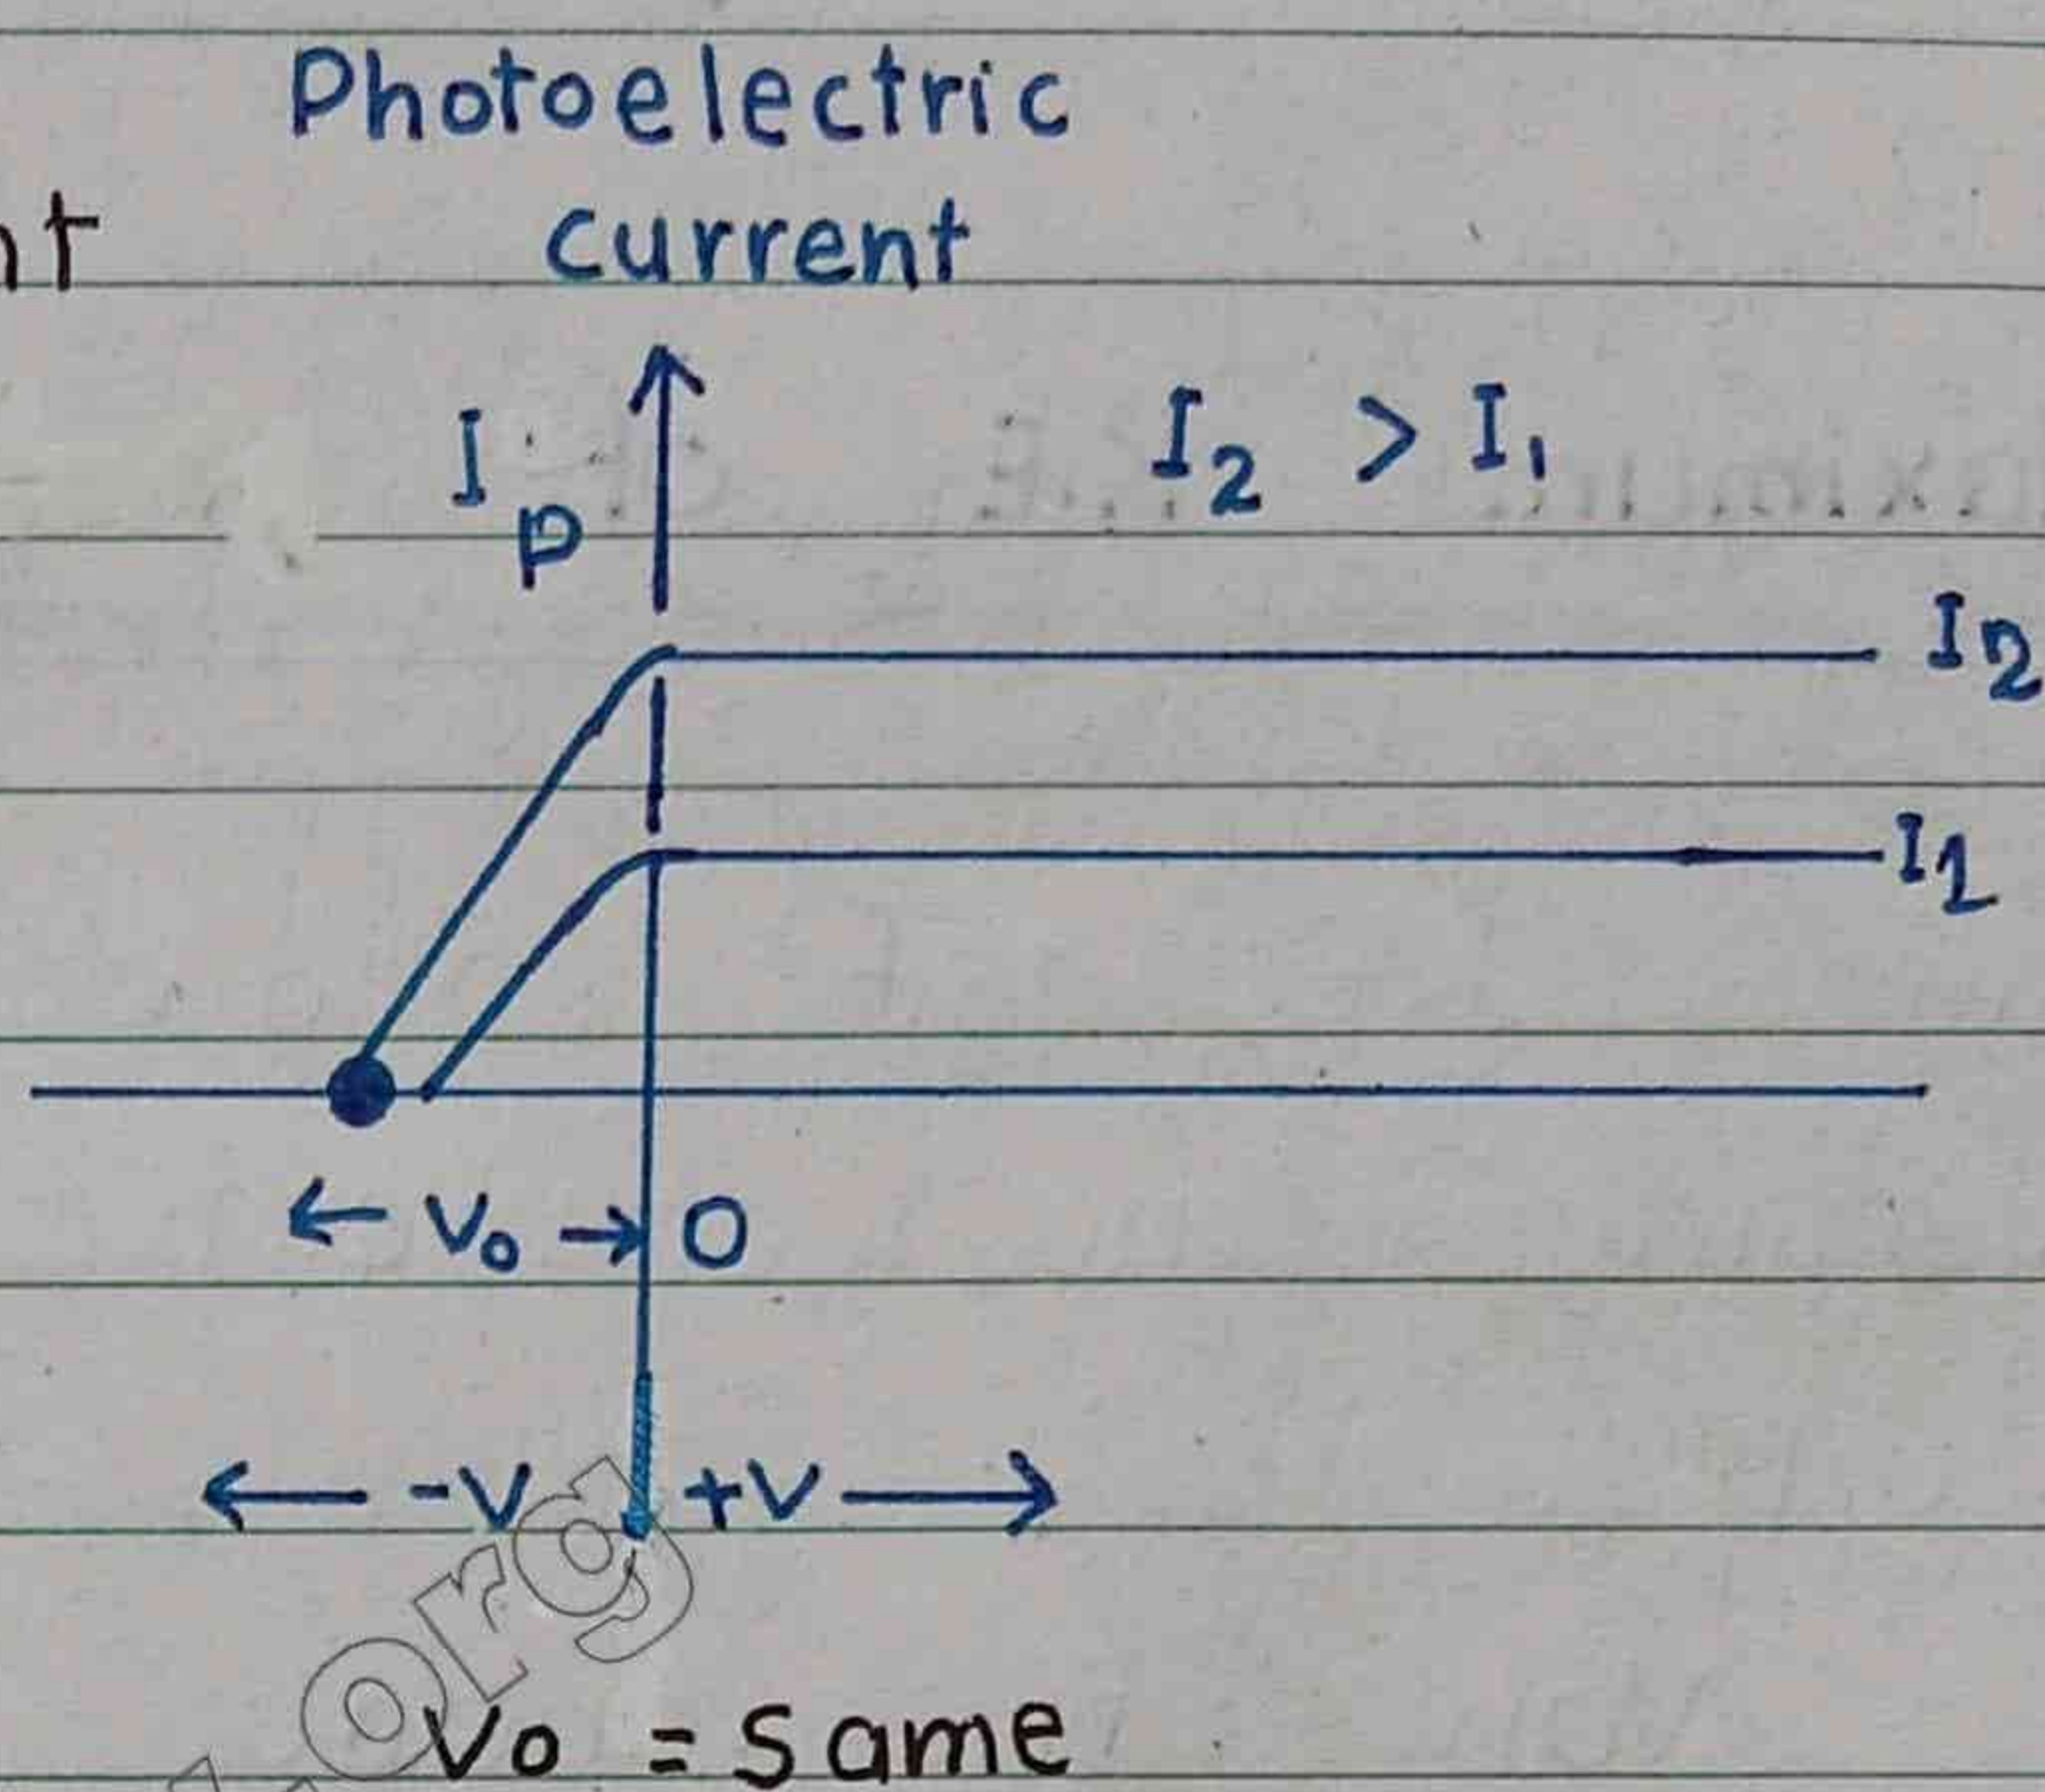 Photoelectric
nt
current
I p
I2 > I1
I2
I1
← V0 → 0
← -V +V →
.org
V0 = Same